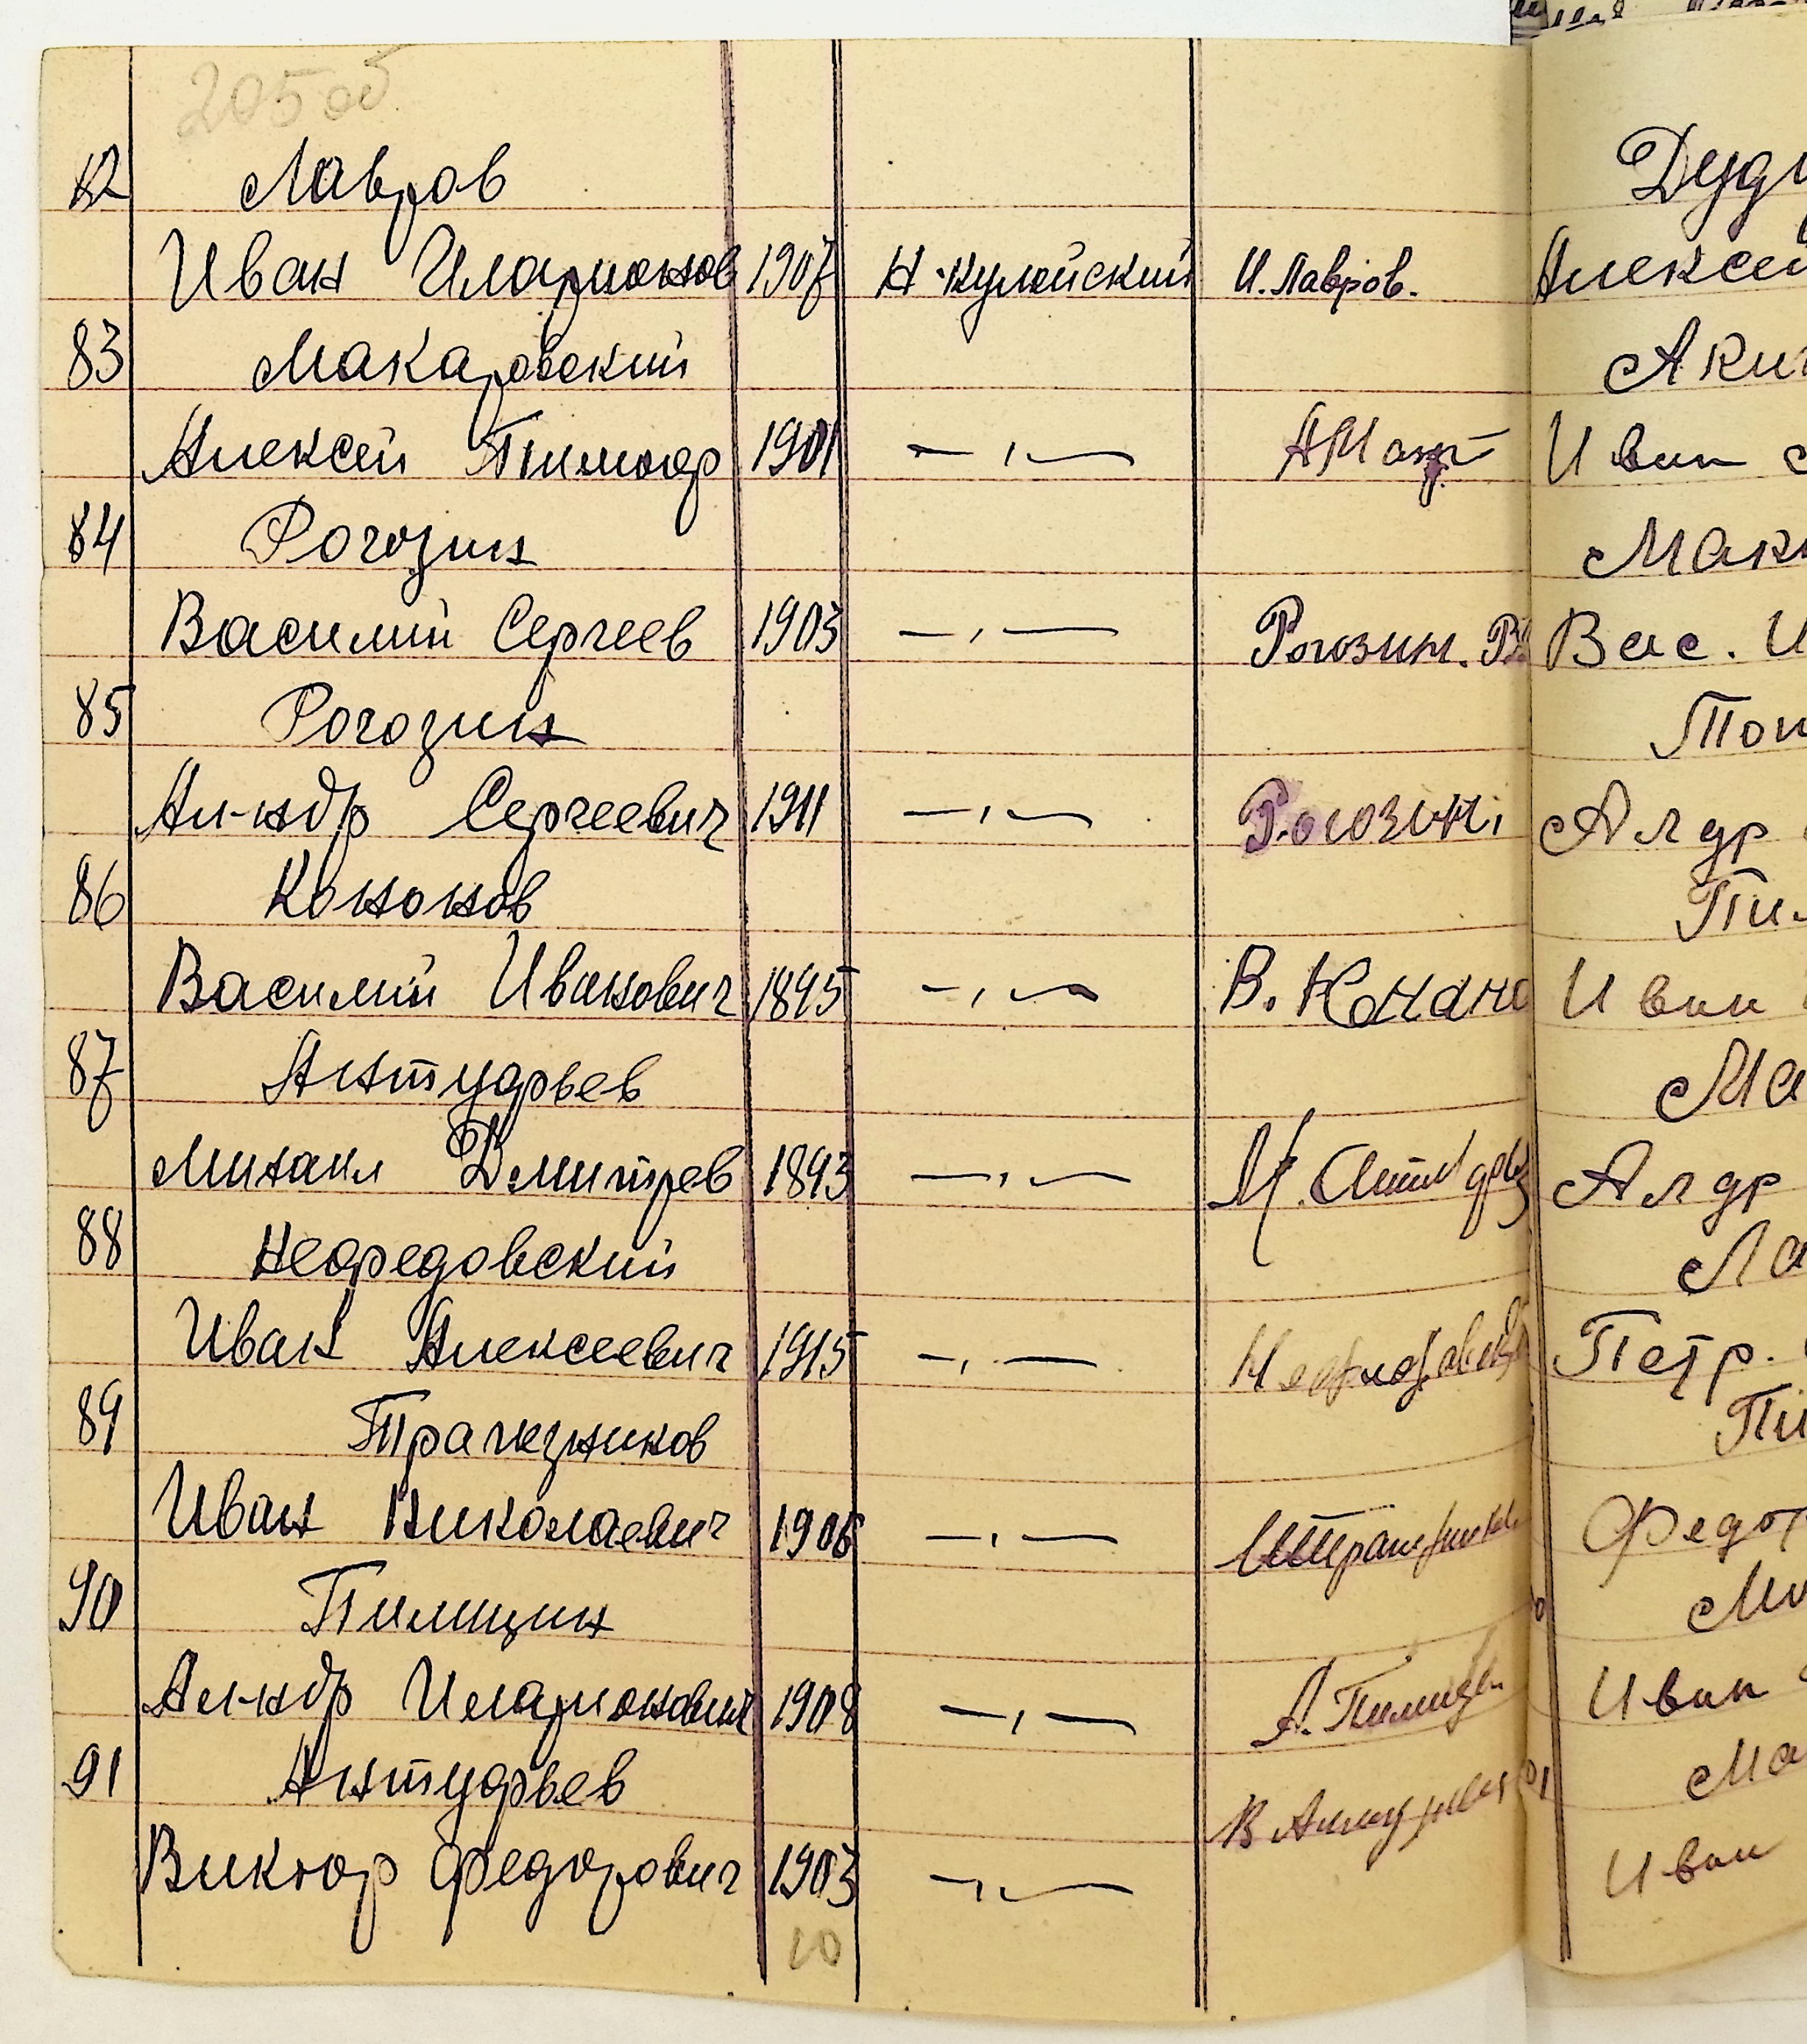 205 об
82 Лавров
Иван Иларионов 1907 Н-Кулойский И. Лавров.
83 Макаровский
Алексей Тимоф 1901 — ı —
84 Рогозин
Василий Сергеев 1903 — ı — Рогозин. В
85 Рогозин
Ал-ндр Сергеевич 1911 — ı — Рогозин
86 Кононов
Василий Иванович 1895 — ı — В. Конано
87 Антуфьев
Михаил Дмитрев 1893 — ı — М.
88 Нефедовский
Иван Алексеевич 1915 — ı —
89 Трапезников
Иван Николаевич 1906 — ı —
90 Пилицин
Ал-ндр Иларионович 1908 — ı — А. Пилиц
91 Антуфьев
Виктор Федорович 1903 — ı — В
10
Дуд
Алексе
Аки
Иван
Мак
Вас. И
Поп
Алдр
Пи
Иван
Ма
Алдр
Ла
Петр.
Пи
Федо
Ми
Иван
Ма
Иван